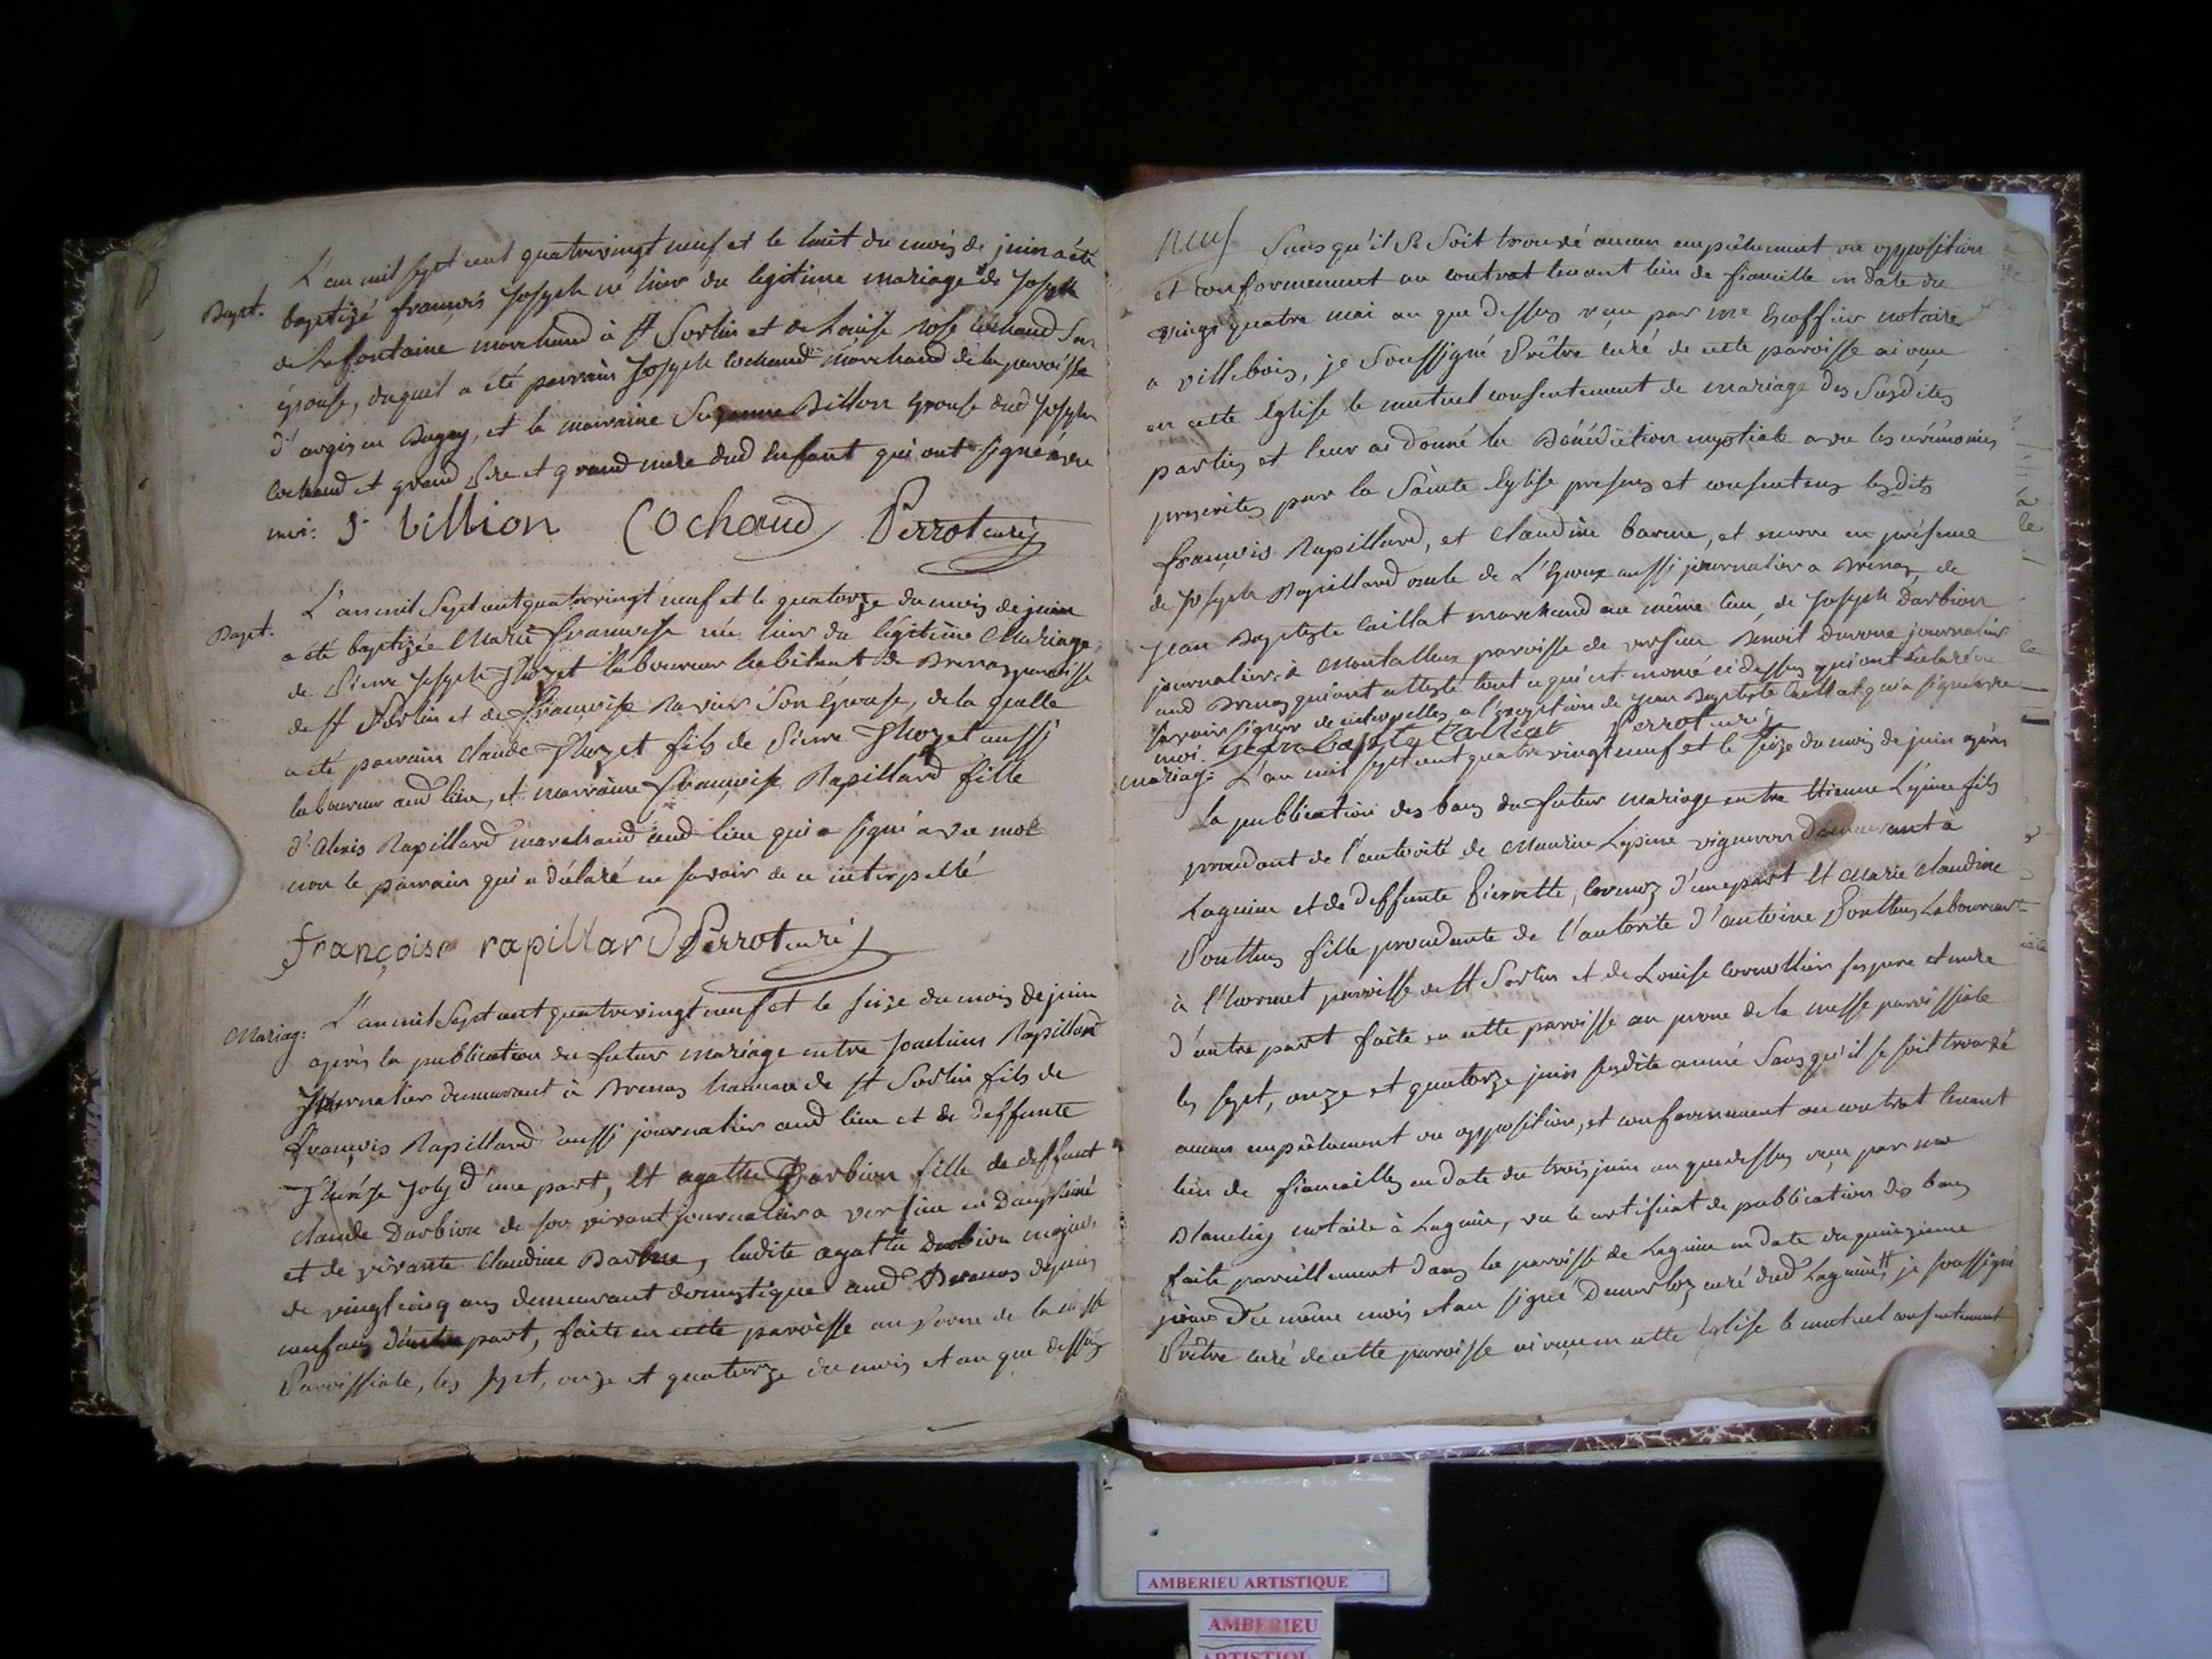 L'an mil sept cent quatrevingt neuf et le huit du mois de juin a été
Bapt. baptizé françois Joseph né hier du legitime mariage de Joseph
de Lafontaine marchand à St Sorlin et de Louise Rose Cochaud son
épouse, duquel a été parrain Joseph Cochaud marchand de la paroisse
d'argis en Bugey, et la marraine Suzanne Billon épouse dud Joseph
Cochaud et grand Pere et grand mere dud enfant qui ont signé avec
moi: S. billion Cochaud Perrot curé
L'an mil Sept cent quatrevingt neuf et le quatorze du mois de juin
Bapt. a été baptizée Marie françoise née hier du légitime Mariage
de Pierre Joseph Thozet laboureur habitant de Brenaz paroisse
de St Sorlin et de françoise Ravier Son épouse, de la quelle
a été parrain Claude Thozet fils de Pierre Thozet aussi
laboureur aud lieu, et marraine françoise Rapillard fille
d'Alexis Rapillard marchand aud lieu qui a signé avec moi
non le parrain qui a déclaré ne savoir de ce interpellé
françoise rapillard Perrot curé
Mariag: L'an mil Sept cent quatrevingt neuf et le seize du mois de juin
après la publication du futur mariage entre Rapillard
Journalier demeurant à Brenas hameau de St Sorlin fils de
françois Rapillard aussi journalier aud lieu et de deffunte
Thérèze Joly d'une part, Et agathe Darbion fille de deffunt
Claude Darbion de son vivant journalier a versieu en Dauphiné
et de vivante Claudine Barbne, ladite agathe Darbion majeure
de vingt cinq ans demeurant domestique aud Brenas depuis
neuf ans d'autre part, faite en cette paroisse au Prone de la messe
Paroissiale, les sept, onze et quatorze du mois et an que dessus
neuf Sans qu'il Se Soit trouvé aucun empêchement ou opposition
et conformement au contrat tenant lieu de fiancaille en date du
vingt quatre mai an que dessus reçu par me Escoffier notaire
a villebois, je Soussigné Prêtre curé de cette paroisse ai reçu
en cette Eglise le mutuel consentement de mariage des Susdites
parties et leur ai donné la Bénédiction nuptiale avec les cérémonies
prescrites par la Sainte Eglise presens et consentens lesdits
françois Rapillard, et Claudine barne, et encore en présence
de Joseph Rapillard oncle de L'Epoux aussi journalier a Brenaz, de
Jean Baptiste Caillat marchand au même lieu, de Joseph Darbion
journalier, à Montallieu paroisse de versieu Benoit journalier
aud Brenaz qui ont attesté tout ce qui est enoncé ci dessus qui ont declaré ne
savoir signer de ce interpellés a l'exception de Jean Baptiste Caillat qui a signé avec
moi. Jean baptiste Calliat Perrot curé
Mariag: L'an mil sept cent quatre vingt neuf et le seize du mois de juin après
la publication des bans du futur mariage entre Etienne Lépine fils
procédant de l'autorité de Maurice Lépine vigneron demeurant à
Lagnieu et de deffunte Pierrette d'une part Et Marie Claudine
fille procédante de l'autorité d'antoine Laboureur
à l'hormet paroisse de St Sorlin et de Louise ses pere et mere
d'autre part faite en cette paroisse au prone de la messe paroissiale
les sept, onze et quatorze juin susdite année Sans qu'il se soit trouvé
aucun empêchement ou opposition, et conformement au contrat tenant
lieu de fiancailles en date du trois juin an que dessus reçu par me
notaire à Lagnieu, vu le certificat de publication des bans
faite pareillement dans la paroisse de Lagnieu en date du quinzieme
jour du même mois et an signé curé dud Lagnieu, je soussigné
Prêtre curé de cette paroisse ai reçu en cette Eglise le mutuel consentement
AMBERIEU ARTISTIQUE
AMBERIEU
ARTISTIQUE